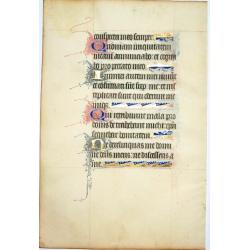 conspectu meo semper.
Quoniam iniquitatem
meam annunciabo: et cogita
bo pro peccato meo.
Inimici autem mei vivunt
et confirmati sunt sup me: et mul
tiplicati sunt qui oderunt me
inique.
Qui retribuunt mala pro
bonis detrahebant michi: qm
sequebar bonitatem.
Ne derelinquas me domi
ne deus meus: ne discesseris a
me.